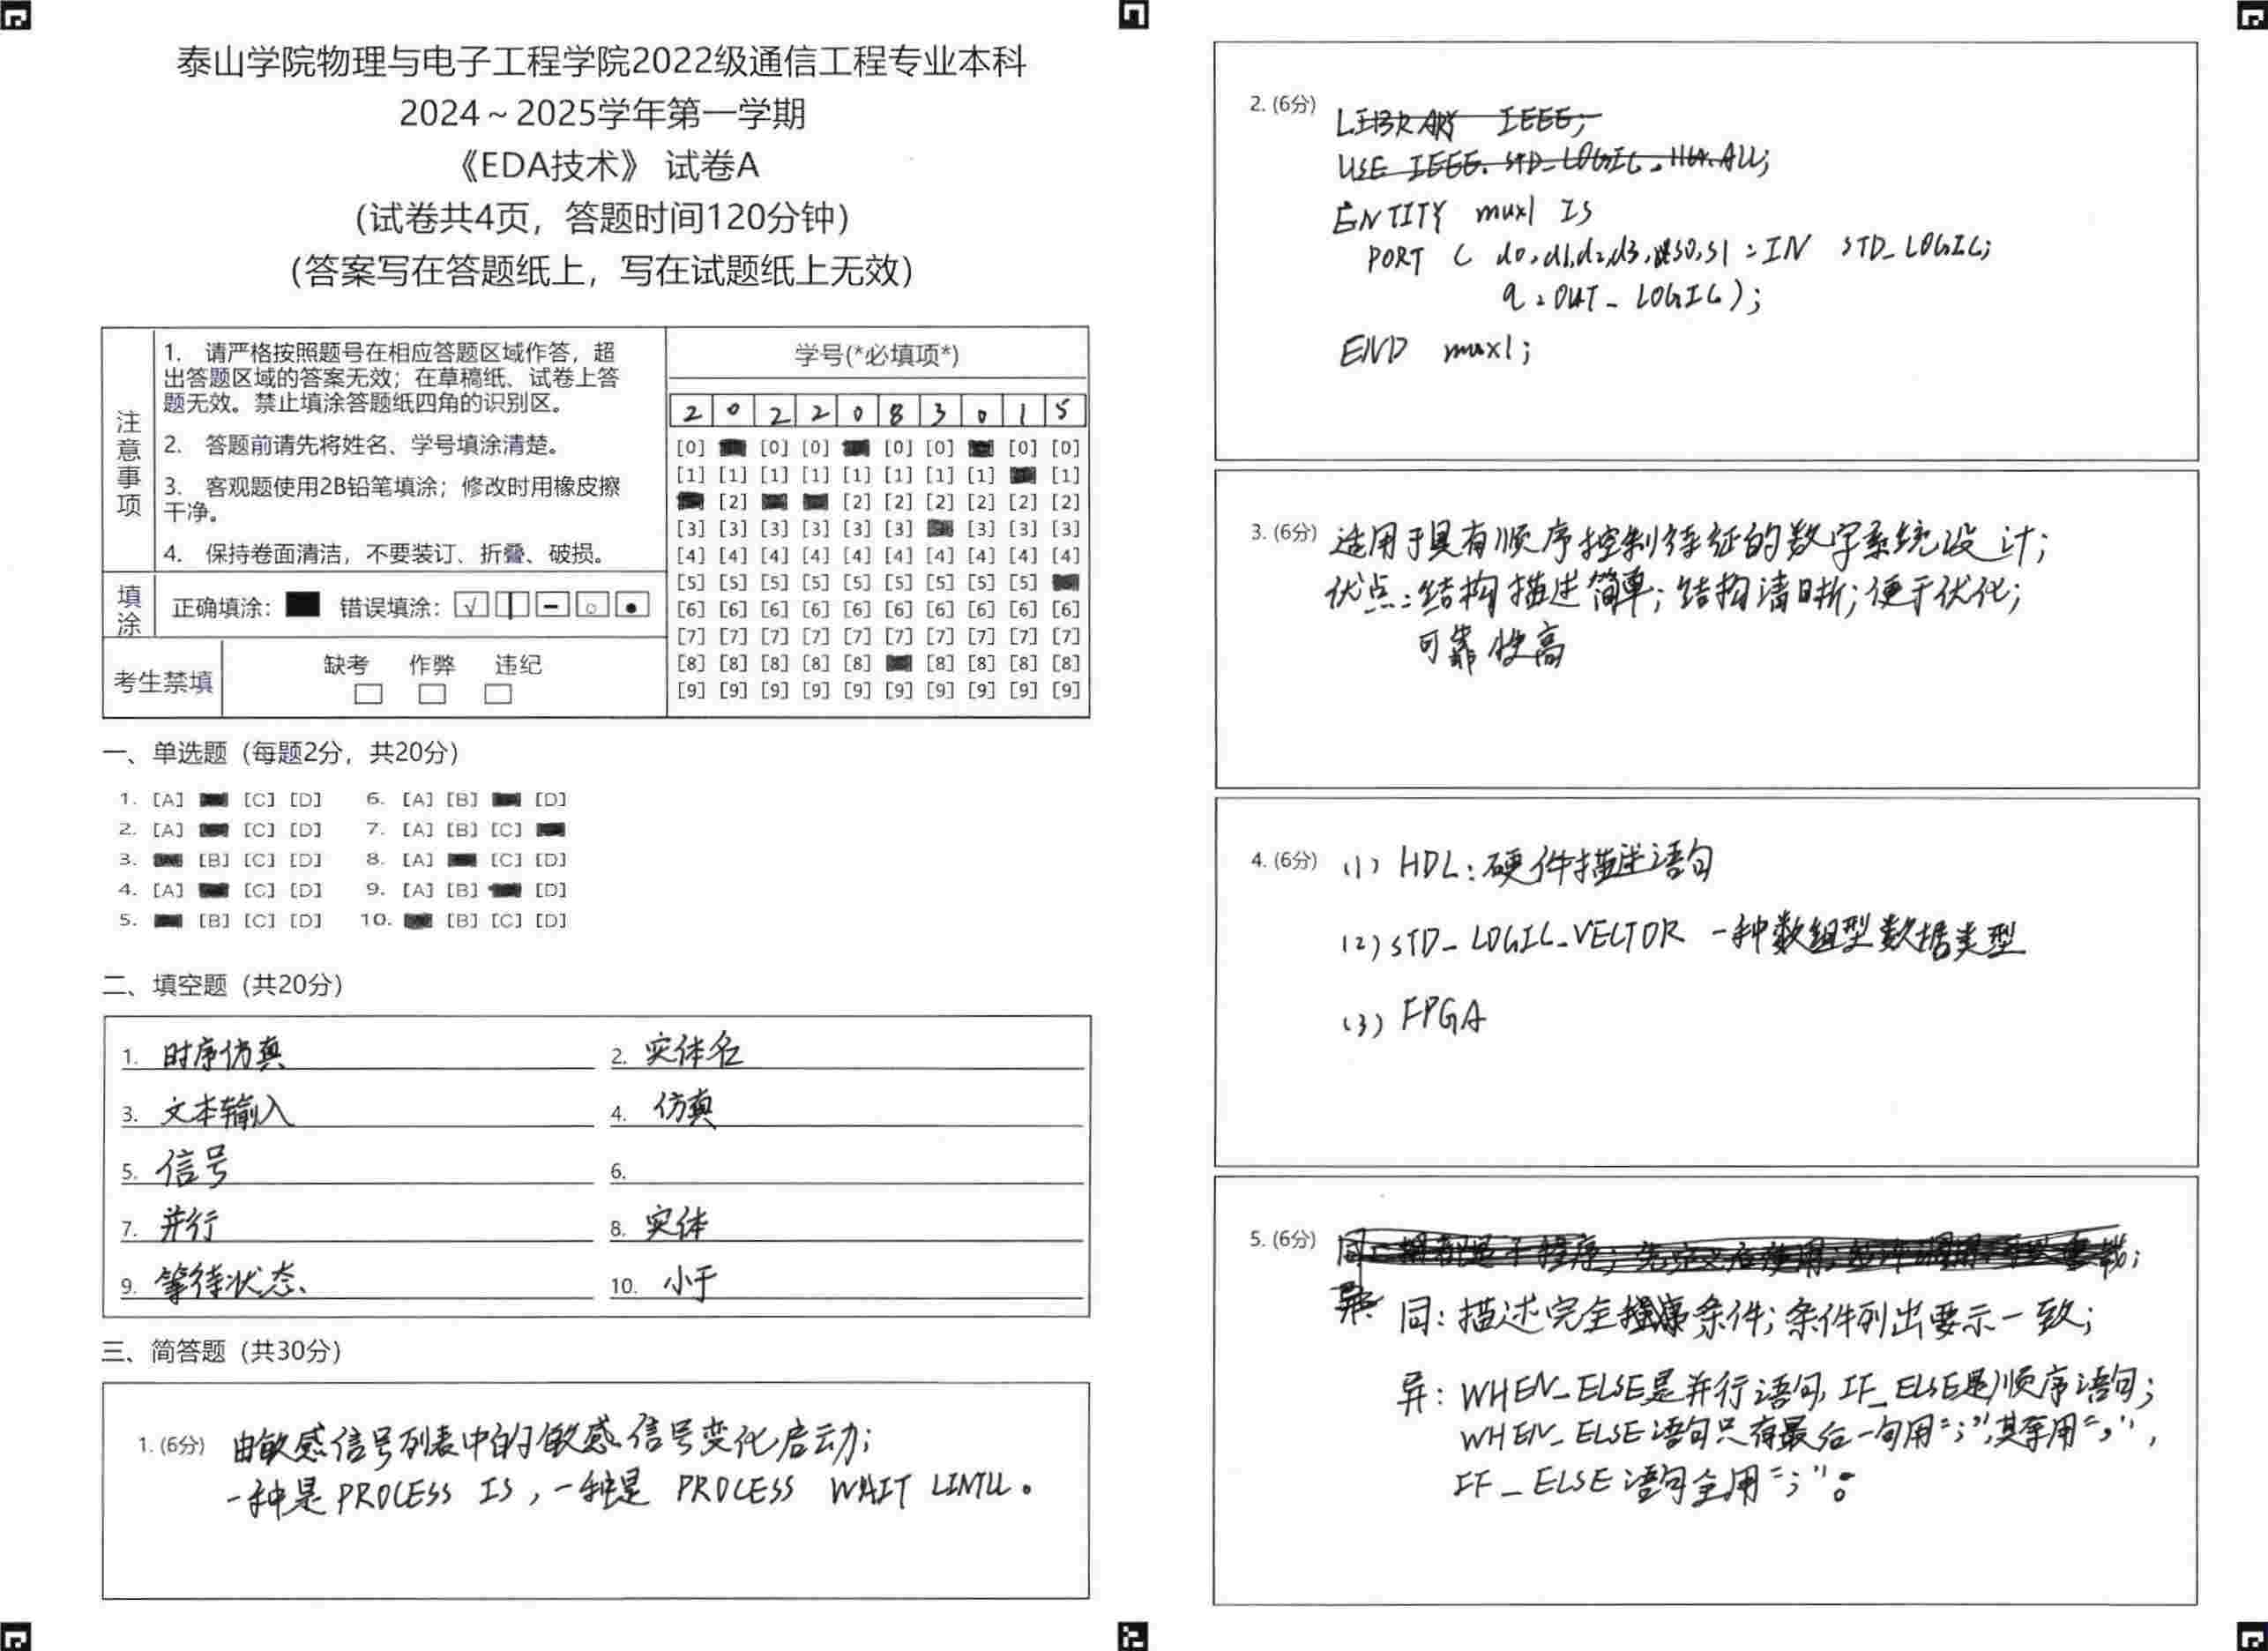 泰山学院物理与电子工程学院2022级通信工程专业本科
2024～2025学年第一学期
《EDA技术》 试卷A
(试卷共4页，答题时间120分钟)
(答案写在答题纸上，写在试题纸上无效)
注意事项
1. 请严格按照题号在相应答题区域作答，超
出答题区域的答案无效；在草稿纸、试卷上答
题无效。禁止填涂答题纸四角的识别区。
2. 答题前请先将姓名、学号填涂清楚。
3. 客观题使用2B铅笔填涂；修改时用橡皮擦
干净。
4. 保持卷面清洁，不要装订、折叠、破损。
填涂
正确填涂： 错误填涂：
考生禁填
缺考 作弊 违纪
学号(*必填项*)
2 0 2 2 0 8 3 0 1 5
[0] [0] [0] [0] [0] [0] [0]
[1] [1] [1] [1] [1] [1] [1] [1] [1]
[2] [2] [2] [2] [2] [2] [2]
[3] [3] [3] [3] [3] [3] [3] [3] [3]
[4] [4] [4] [4] [4] [4] [4] [4] [4] [4]
[5] [5] [5] [5] [5] [5] [5] [5] [5]
[6] [6] [6] [6] [6] [6] [6] [6] [6] [6]
[7] [7] [7] [7] [7] [7] [7] [7] [7] [7]
[8] [8] [8] [8] [8] [8] [8] [8] [8]
[9] [9] [9] [9] [9] [9] [9] [9] [9] [9]
一、单选题（每题2分，共20分）
1. [A] [C] [D] 6. [A] [B] [D]
2. [A] [C] [D] 7. [A] [B] [C]
3. [B] [C] [D] 8. [A] [C] [D]
4. [A] [C] [D] 9. [A] [B] [D]
5. [B] [C] [D] 10. [B] [C] [D]
二、填空题（共20分）
1. 时序仿真 2. 实体名
3. 文本输入 4. 仿真
5. 信号 6.
7. 并行 8. 实体
9. 等待状态、 10. 小于
三、简答题（共30分）
1. (6分) 由敏感信号列表中的敏感信号变化启动；
一种是PROCESS IS，一种是 PROCESS WAIT UNTIL。
2. (6分) LIBRARY IEEE;
USE IEEE.STD_LOGIC_1164.ALL;
ENTITY mux1 IS
PORT ( d0,d1,d2,d3,s0,s1 : IN STD_LOGIC;
q : OUT_LOGIC);
END mux1;
3. (6分) 适用于具有顺序控制特征的数字系统设计；
优点：结构描述简单；结构清晰；便于优化；
可靠性高
4. (6分) (1) HDL：硬件描述语句
(2) STD_LOGIC_VECTOR 一种数组型数据类型
(3) FPGA
5. (6分)
同：描述完全条件；条件列出要示一致；
异：WHEN_ELSE是并行语句，IF_ELSE是顺序语句；
WHEN_ELSE语句只有最后一句用“；”，其余用“，”，
IF_ELSE语句全用“；”。